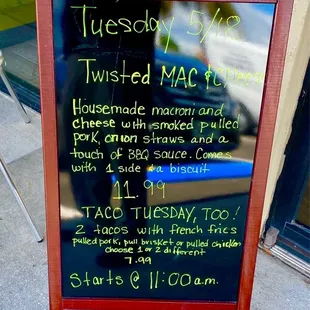 Tuesday 5/18
Twisted MAC & Cheese
Housemade macroni and
cheese with smoked pulled
pork, onion straws and a
touch of BBQ sauce. Comes
with 1 side & a biscuit
11.99
TACO TUESDAY, TOO!
2 tacos with french fries
pulled pork, pull brisket or pulled chicken
choose 1 or 2 different
7.99
Starts @ 11:00 a.m.